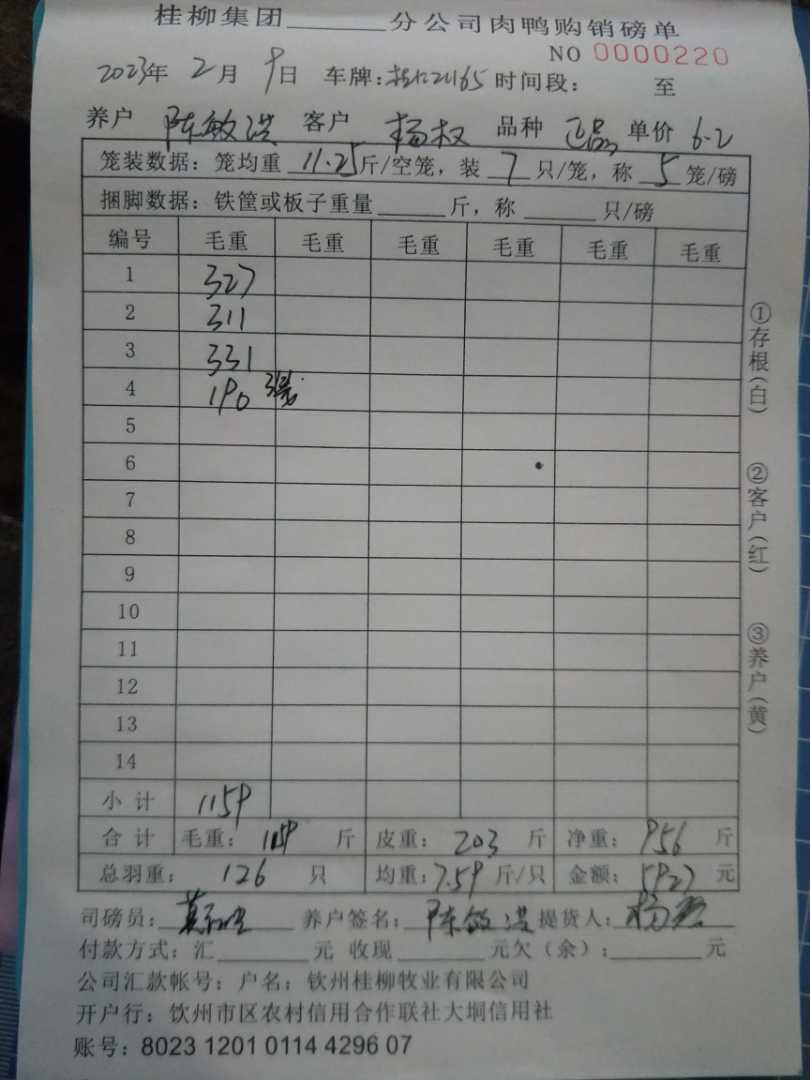 桂柳集团______分公司肉鸭购销磅单
NO 0000220
2023年 2月 9日 车牌: 时间段: 至
养户 陈敏洪 客户 杨权 品种 正品 单价 6.2
笼装数据:笼均重 11.25斤/空笼,装 7 只/笼,称 5 笼/磅
捆脚数据:铁筐或板子重量______斤,称______只/磅
编号 毛重 毛重 毛重 毛重 毛重 毛重
1 327
2 311
3 331
4 190 3笼
5
6
7
8
9
10
11
12
13
14
小计 1159
合计 毛重: 1159 斤 皮重: 203 斤 净重: 956 斤
总羽重: 126 只 均重:7.59斤/只 金额:5927元
司磅员: 养户签名:陈敏洪 提货人:杨
付款方式:汇______元 收现______元欠(余):______元
公司汇款帐号:户名:钦州桂柳牧业有限公司
开户行:钦州市区农村信用合作联社大垌信用社
账号:8023 1201 0114 4296 07
①存根(白)
②客户(红)
③养户(黄)